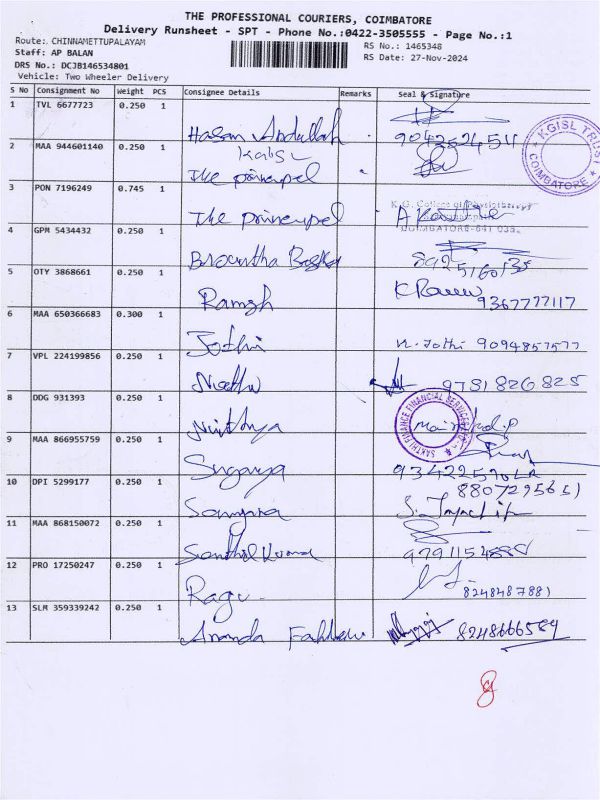 THE PROFESSIONAL COURIERS, COIMBATORE
Delivery Runsheet - SPT - Phone No.:0422-3505555 - Page No.:1
Route: CHINNAMETTUPALAYAM
RS No.: 1465348
Staff: AP BALAN
RS Date: 27-Nov-2024
DRS No.: DCJB146534801
Vehicle: Two Wheeler Delivery
S No Consignment No Weight PCS Consignee Details Remarks Seal & Signature
1 TVL 6677723 0.250 1
Hasan Abdullah
2 MAA 944601140 0.250 1
The
KGISL TRUST
COIMBATORE
3 PON 7196249 0.745 1
The
K.G. College of Physiotherapy
COIMBATORE-641 035
4 GPM 5434432 0.250 1
5 OTY 3868661 0.250 1
Ramesh
9367777117
6 MAA 650366683 0.300 1
Jothi N. Jothi 9094857577
7 VPL 224199856 0.250 1
9781826825
8 DDG 931393 0.250 1
Nithya
SAKTHI FINANCE FINANCIAL SERVICES
9 MAA 866955759 0.250 1
Suganya
10 DPI 5299177 0.250 1
11 MAA 868150072 0.250 1
Senthil Kumar
12 PRO 17250247 0.250 1
Ragu
8248487881
13 SLM 359339242 0.250 1
Ananda 8248666584